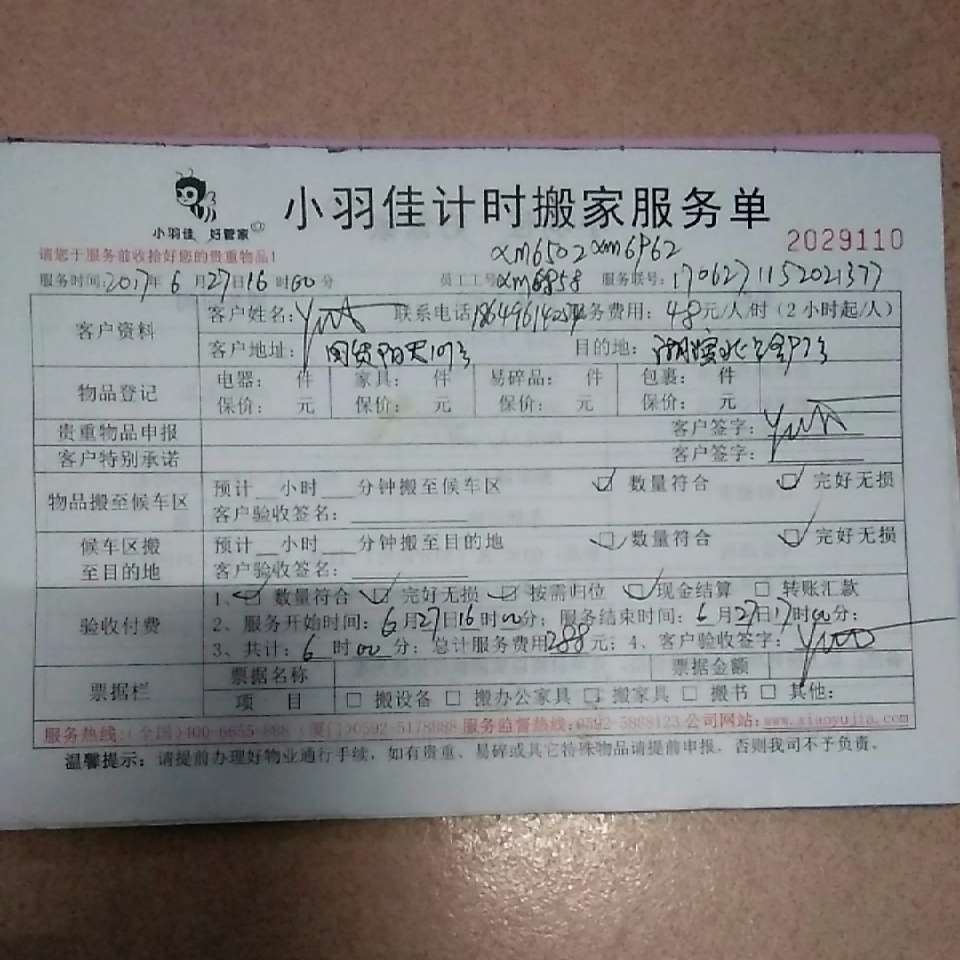 小羽佳 好管家
小羽佳计时搬家服务单
2029110
请您于服务前收拾好您的贵重物品!
xm6502 xm6962
服务时间:2017年6月27日16时00分 员工工号:xm6858 服务联号:1706271152021377
客户资料
客户姓名: 联系电话: 服务费用:48元/人/时（2小时起/人）
客户地址: 目的地:
物品登记
电器: 件 家具: 件 易碎品: 件 包裹: 件
保价: 元 保价: 元 保价: 元 保价: 元
贵重物品申报 客户签字:
客户特别承诺 客户签字:
物品搬至候车区
预计__小时___分钟搬至候车区 数量符合 完好无损
客户验收签名:
候车区搬至目的地
预计__小时___分钟搬至目的地 数量符合 完好无损
客户验收签名:
验收付费
1、 数量符合 完好无损 按需归位 现金结算 □ 转账汇款
2、服务开始时间:6月27日16时00分; 服务结束时间:6月27日17时00分;
3、共计:6时00分; 总计服务费用288元; 4、客户验收签字:
票据栏
票据名称 票据金额
项 目 □ 搬设备 □ 搬办公家具 □ 搬家具 □ 搬书 □ 其他:
服务热线:(全国)400-6655-888 (厦门)0592-5178888 服务监督热线:0592-5888123 公司网站:www.xiaoyujia.com
温馨提示: 请提前办理好物业通行手续, 如有贵重、易碎或其它特殊物品请提前申报, 否则我司不予负责。